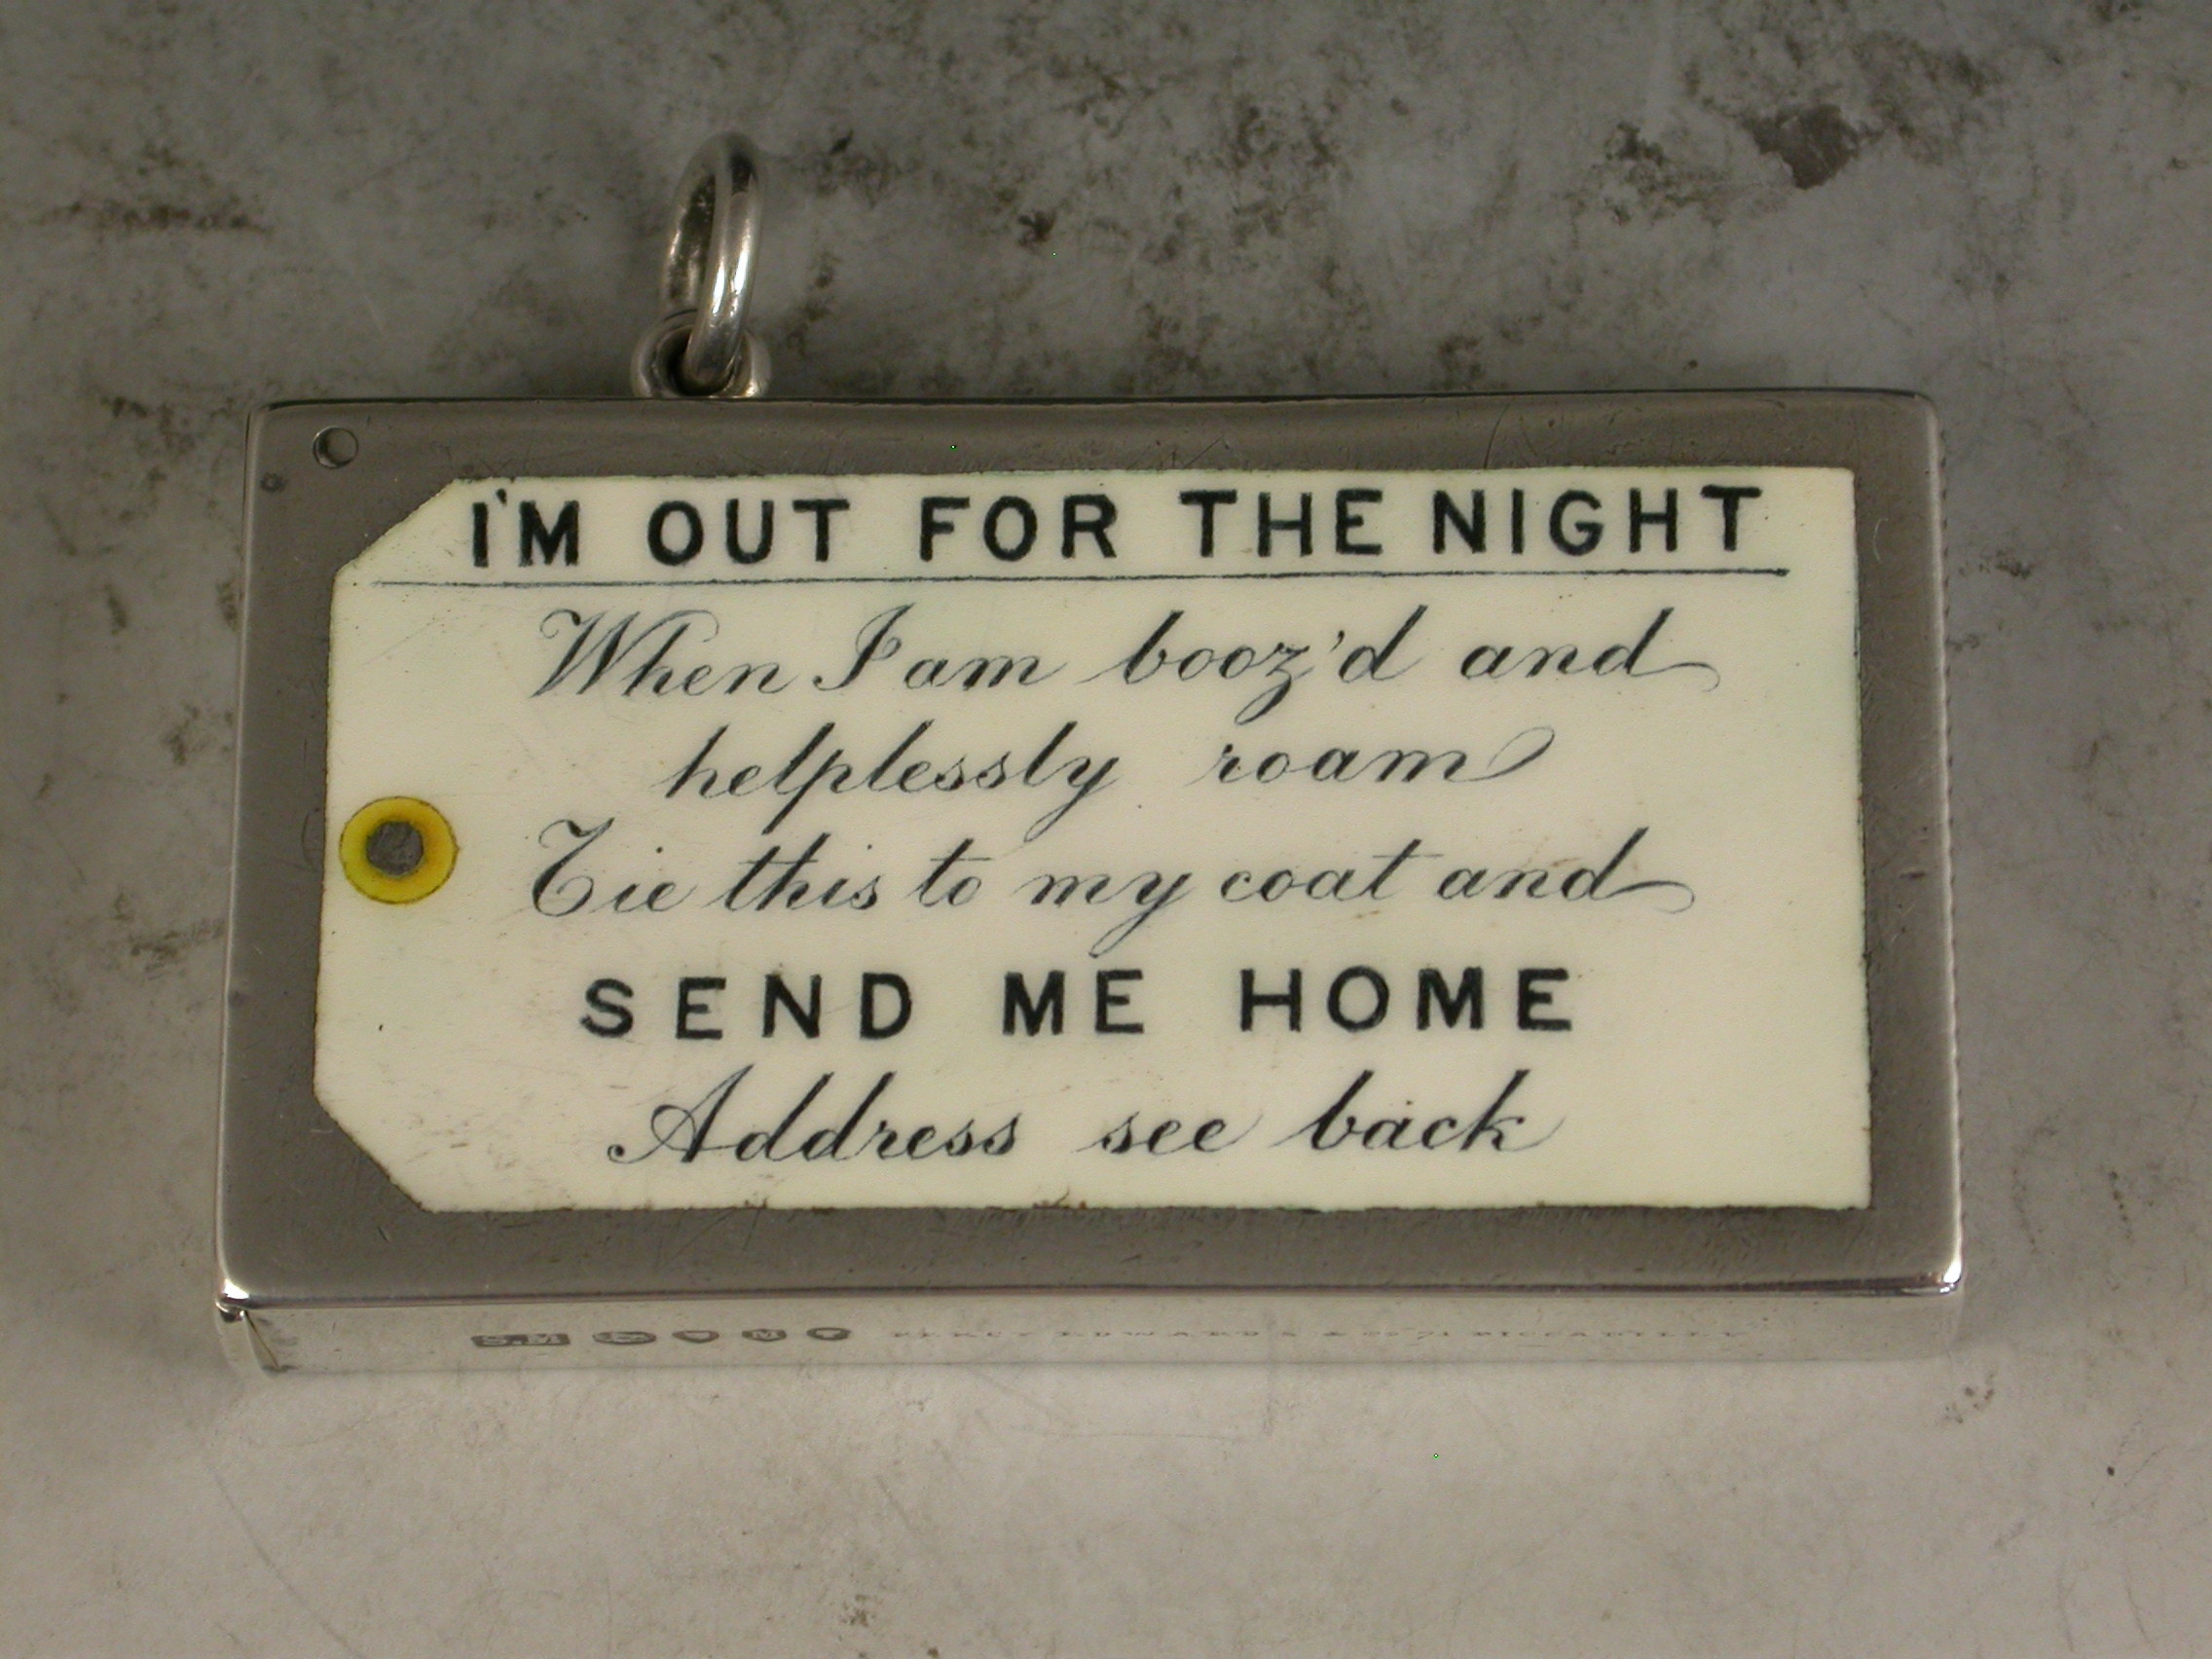 I'M OUT FOR THE NIGHT
When I am booz'd and
helplessly roam
Tie this to my coat and
SEND ME HOME
Address see back
S.M